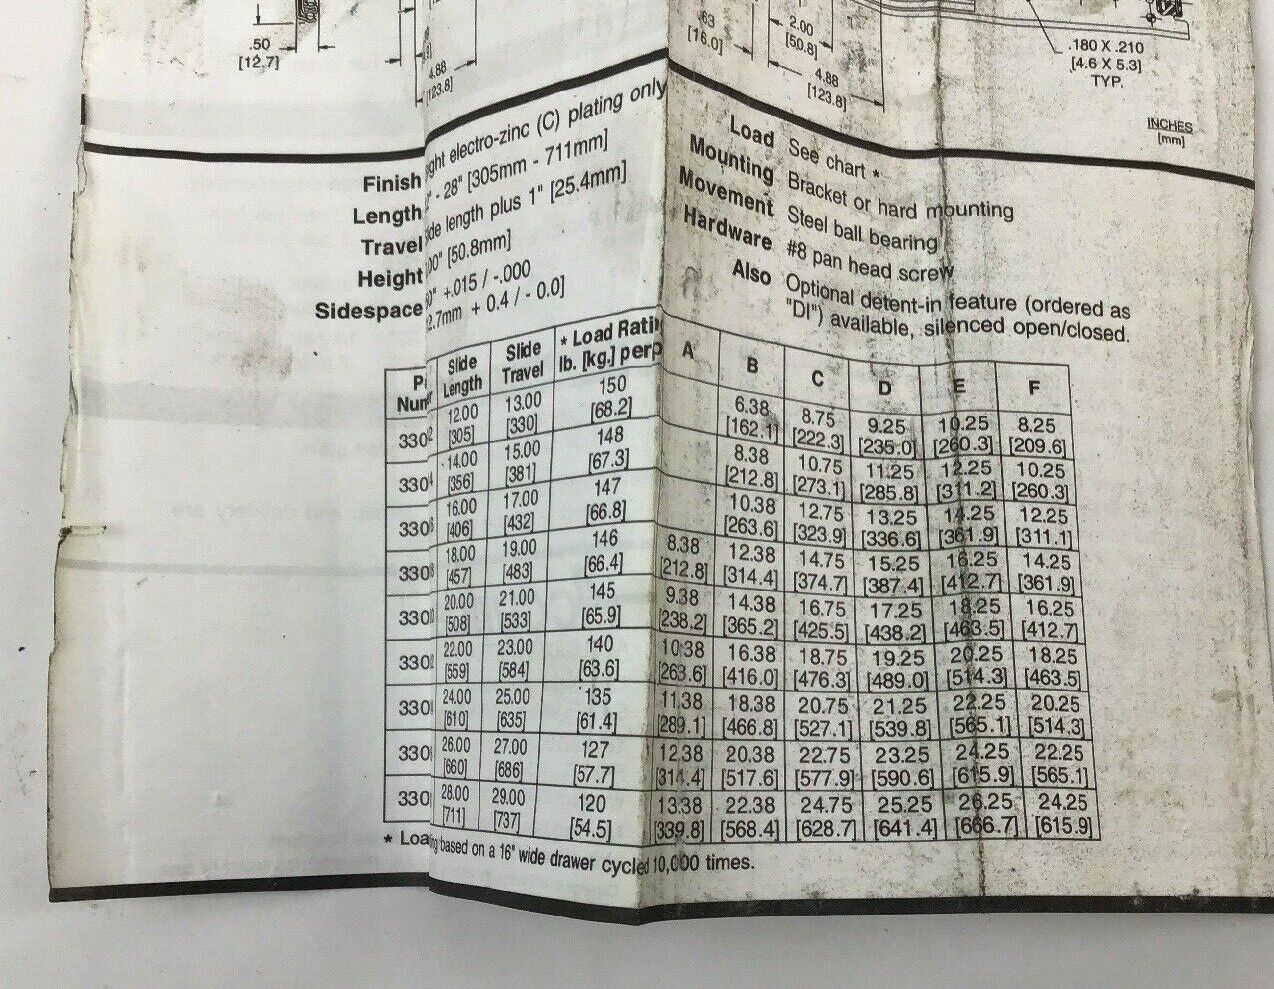 .50
[12.7]
4.88
[123.8]
.63
[16.0]
2.00
[50.8]
4.88
[123.8]
.180 X .210
[4.6 X 5.3]
TYP.
INCHES
[mm]
Finish ight electro-zinc (C) plating only
Length - 28" [305mm - 711mm]
Travel de length plus 1" [25.4mm]
Height 00" [50.8mm]
Sidespace 0" +.015 / -.000
2.7mm + 0.4 / - 0.0]
Load See chart *
Mounting Bracket or hard mounting
Movement Steel ball bearing
Hardware #8 pan head screw
Also Optional detent-in feature (ordered as
"DI") available, silenced open/closed.
Slide Length Slide Travel * Load Ratin lb. [kg.] per p A B C D E F
3302 12.00 13.00 150 6.38 8.75 9.25 10.25 8.25
[305] [330] [68.2] [162.1] [222.3] [235.0] [260.3] [209.6]
3304 14.00 15.00 148 8.38 10.75 11.25 12.25 10.25
[356] [381] [67.3] [212.8] [273.1] [285.8] [311.2] [260.3]
3306 16.00 17.00 147 10.38 12.75 13.25 14.25 12.25
[406] [432] [66.8] [263.6] [323.9] [336.6] [361.9] [311.1]
3308 18.00 19.00 146 8.38 12.38 14.75 15.25 16.25 14.25
[457] [483] [66.4] [212.8] [314.4] [374.7] [387.4] [412.7] [361.9]
330 20.00 21.00 145 9.38 14.38 16.75 17.25 18.25 16.25
[508] [533] [65.9] [238.2] [365.2] [425.5] [438.2] [463.5] [412.7]
330 22.00 23.00 140 10.38 16.38 18.75 19.25 20.25 18.25
[559] [584] [63.6] [263.6] [416.0] [476.3] [489.0] [514.3] [463.5]
330 24.00 25.00 135 11.38 18.38 20.75 21.25 22.25 20.25
[610] [635] [61.4] [289.1] [466.8] [527.1] [539.8] [565.1] [514.3]
330 26.00 27.00 127 12.38 20.38 22.75 23.25 24.25 22.25
[660] [686] [57.7] [314.4] [517.6] [577.9] [590.6] [615.9] [565.1]
330 28.00 29.00 120 13.38 22.38 24.75 25.25 26.25 24.25
[711] [737] [54.5] [339.8] [568.4] [628.7] [641.4] [666.7] [615.9]
* Loa ng based on a 16" wide drawer cycled 10,000 times.